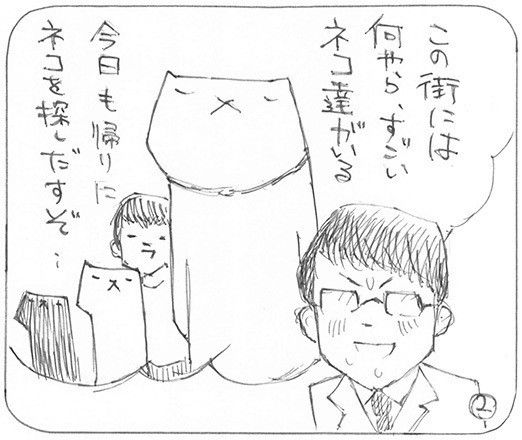 この街には
何やら、すごい
ネコ達がいる
今日も帰りに
ネコを探しだすぞ…
2